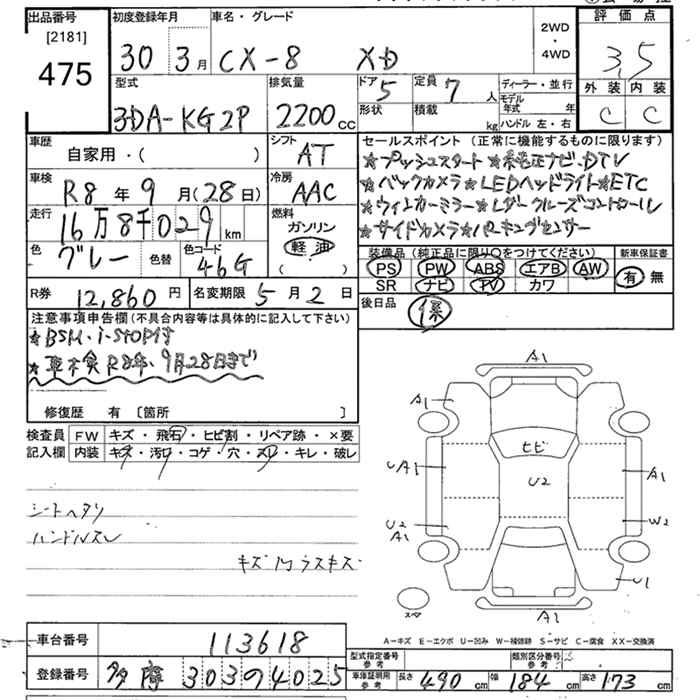 出品番号 初度登録年月 車名・グレード 2WD・4WD 評価点
[2181]
475 30 3月 CX-8 XD 3.5
型式 排気量 ドア 5 定員 7人 ディーラー・並行 外装 内装
3DA-KG2P 2200cc 形状 積載 kg モデル年式 年 ハンドル 左・右 C C
車歴 シフト セールスポイント (正常に機能するものに限ります)
自家用・( ) AT ★プッシュスタート★純正ナビ、DTV
車検 冷房 ★バックカメラ★LEDヘッドライト★ETC
R8年 9月(28日) AAC ★ウインカーミラー★レーダークルーズコントロール
走行 燃料 ★サイドカメラ★パーキングセンサー
16万8千029km ガソリン
軽油
( )
色 色替 色コード 装備品 (純正品に限り○をつけてください) 新車保証書
グレー 46G PS PW ABS エアB AW 有 無
SR ナビ TV カワ
R券 12,860円 名変期限 5月2日 後日品 保
注意事項申告欄 (不具合内容等は具体的に記入して下さい)
★BSM、i-STOP付
★車検R8年、9月28日まで
修復歴 有 [箇所 ]
検査員 FW キズ・飛石・ヒビ割・リペア跡・×要
記入欄 内装 キズ・汚レ・コゲ・穴・スレ・キレ・破レ
シートヘタリ
ハンドルスレ
キズ
A1
A1
ヒビ
UA1 U2 A1
U2 A1 W2
U1
A1
A-キズ E-エクボ U-凹み W-補修跡 S-サビ C-腐食 XX-交換済
車台番号 113618 型式指定番号 参考 類別区分番号 参考
登録番号 303 4025 車庫証明用 参考 長さ 490cm 幅 184cm 高さ 173cm